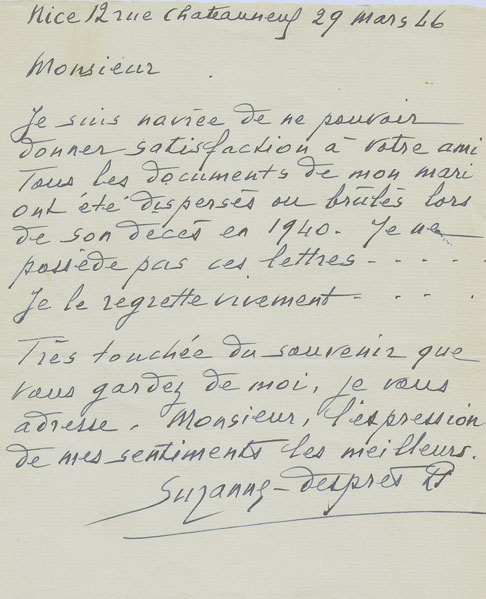 Nice 12 rue Chateauneuf 29 Mars 46
Monsieur
Je suis navrée de ne pouvoir
donner satisfaction à votre ami
Tous les documents de mon mari
ont été dispersés ou brûlés lors
de son décès en 1940. Je ne
possède pas ces lettres - - - - -
Je le regrette vivement - - - -
Très touchée du souvenir que
vous gardez de moi, je vous
adresse, Monsieur, l'expression
de mes sentiments les meilleurs.
Suzanne-després